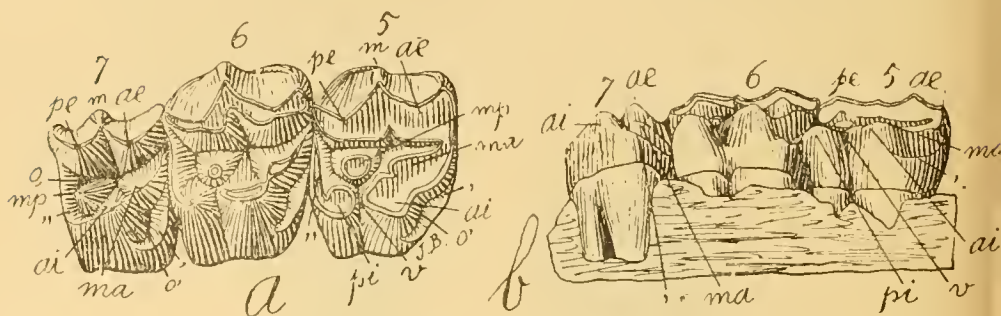 7 6 5
pe m ae pe m ae
mp
ma
o,
mp,
,,
ai
ma o' , a ,, pi v J.B. o' ai ,
7 ae 6 pe 5 ae
ai
ma
,
ai
b , ma pi v